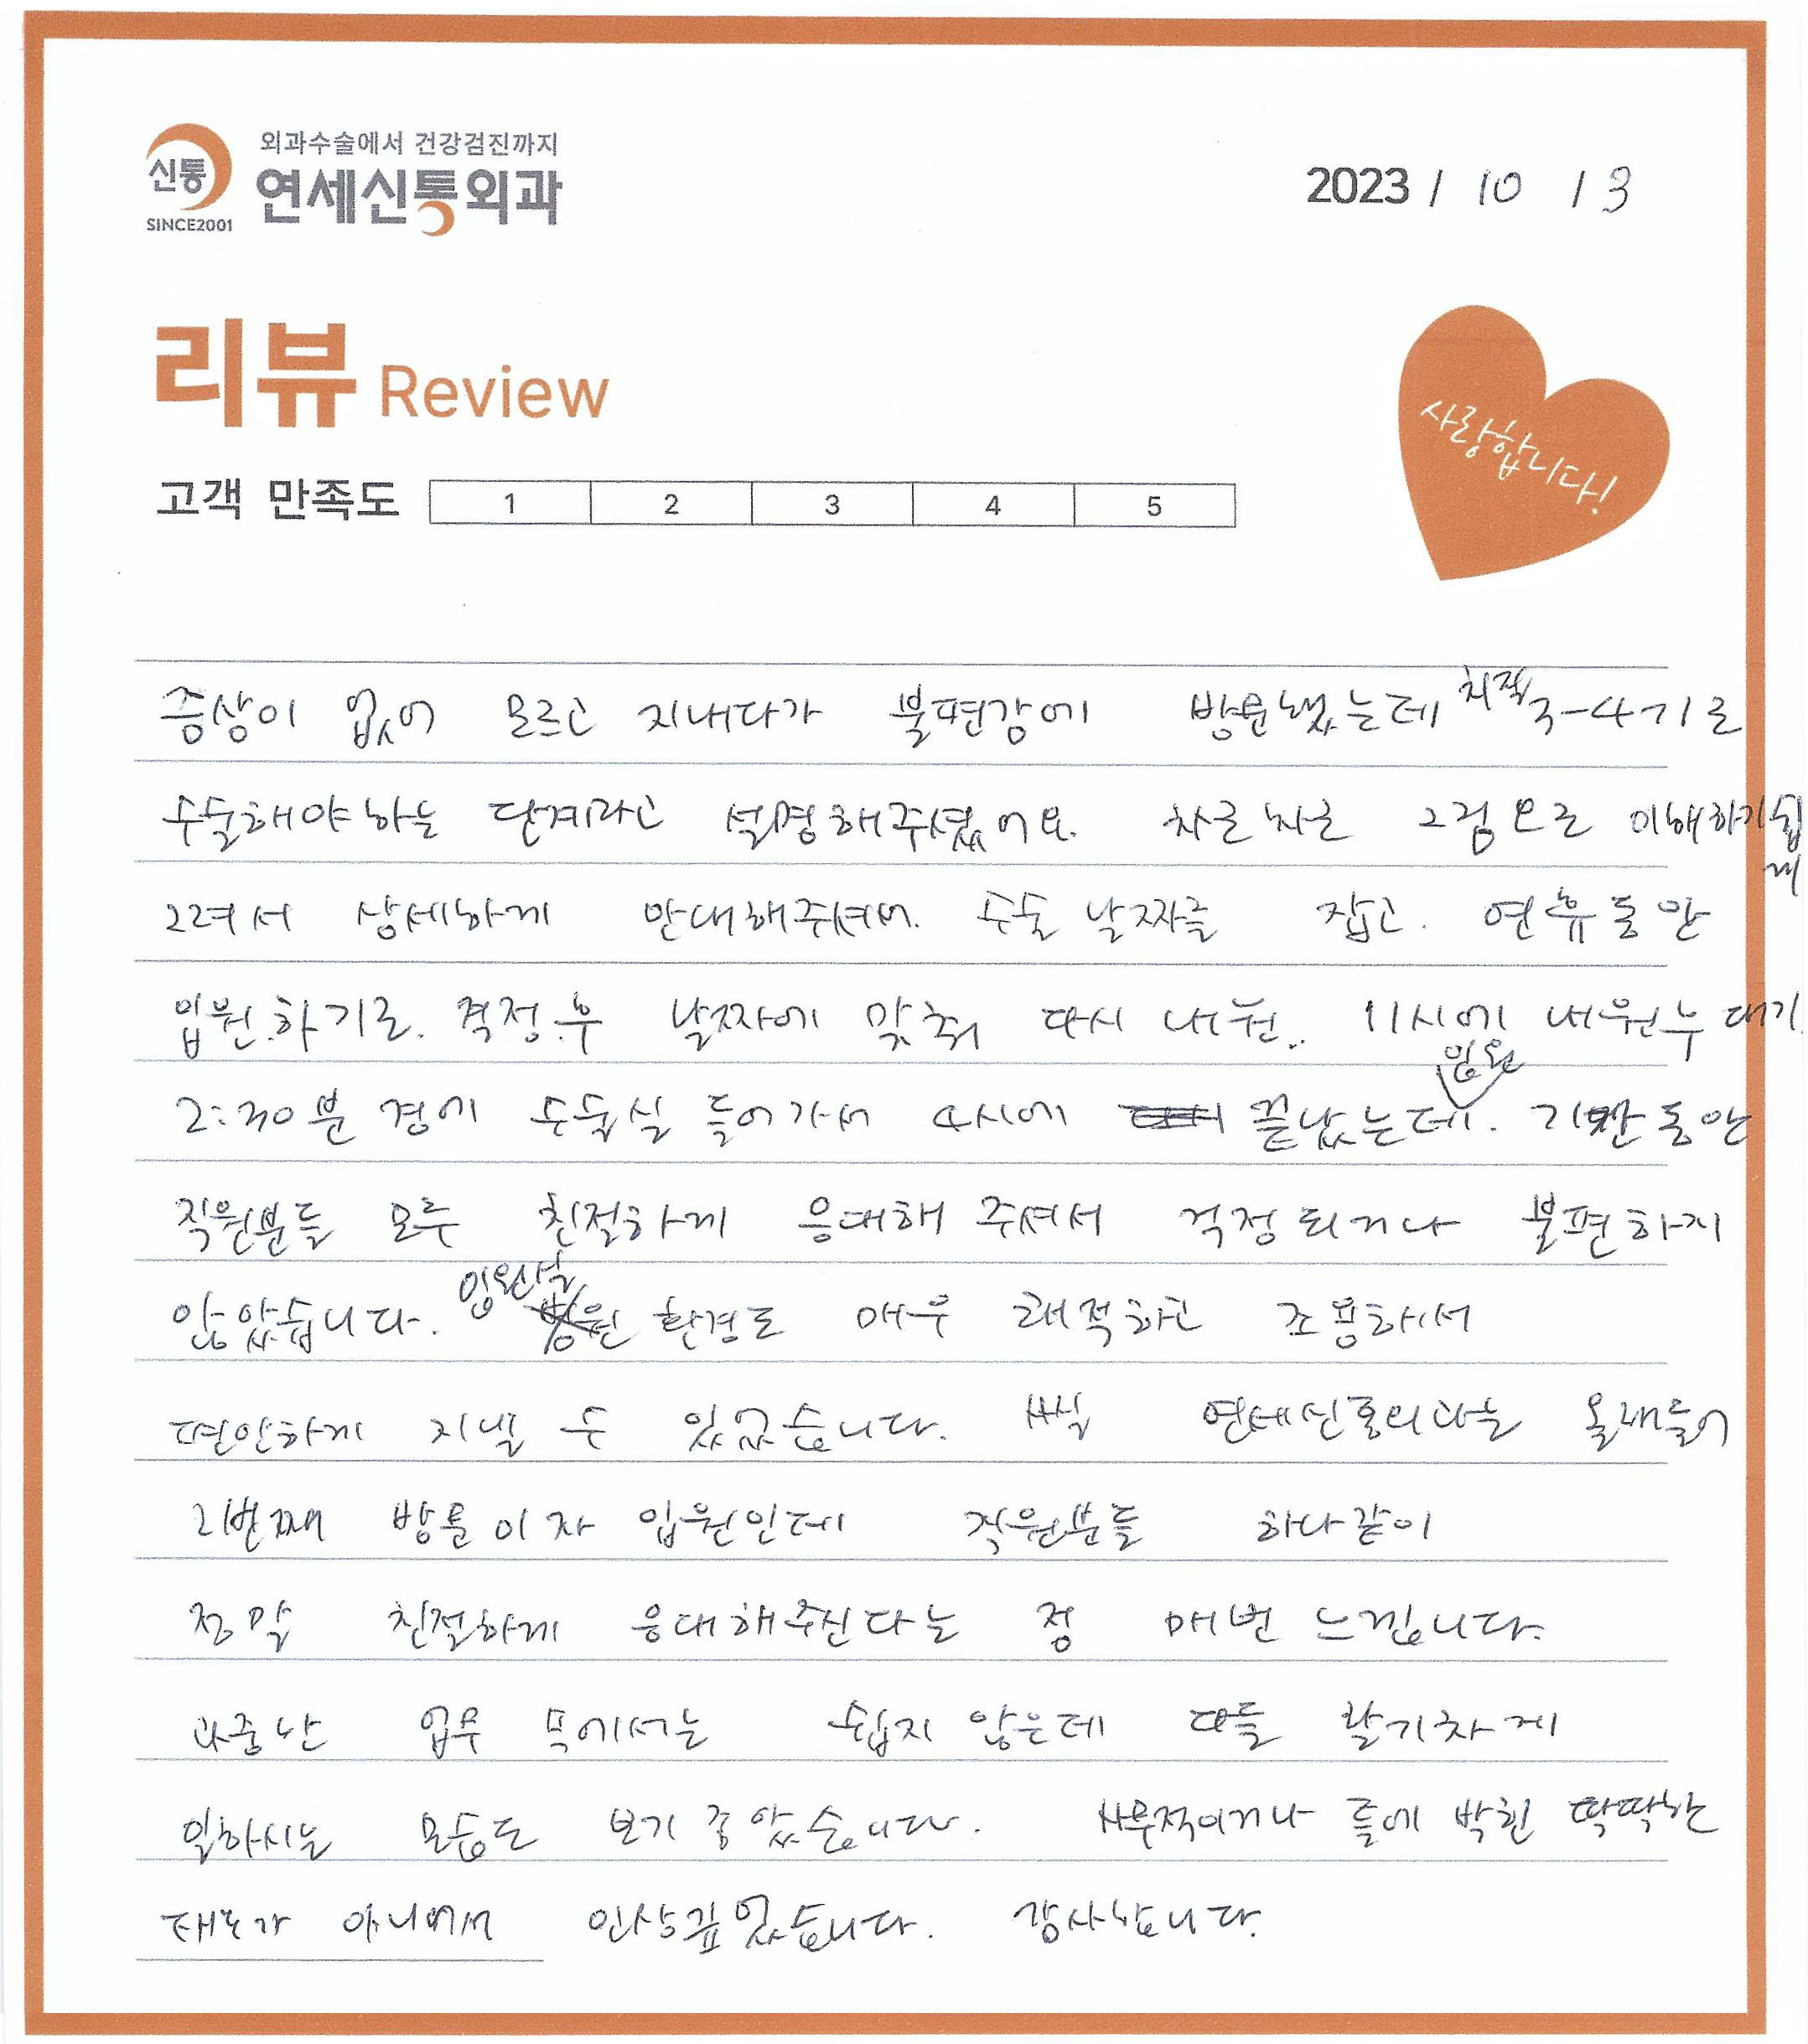 외과수술에서 건강검진까지
신통
연세신통외과
SINCE2001
2023 / 10 / 3
리뷰 Review
사랑합니다!
고객 만족도 1 2 3 4 5
증상이 없어 모르고 지내다가 불편감에 방문했는데 치질 3-4기로
수술해야하는 단계라고 설명해주셨어요. 차근차근 그림으로 이해하기 쉽게
그려서 상세하게 안내해주셔서. 수술 날짜를 잡고. 연휴동안
입원.하기로. 결정.후 날짜에 맞춰 다시 내원.. 11시에 내원후 대기.
2:30분 경에 수술실 들어가서 4시에 끝났는데. 입원 기간동안
직원분들 모두 친절하게 응대해 주셔서 걱정되거나 불편하지
않았습니다. 입원실 환경도 매우 쾌적하고 조용해서
편안하게 지낼 수 있었습니다. 사실 연세신통외과는 올해들어
2번째 방문이자 입원인데 직원분들 하나같이
정말 친절하게 응대해주신다는 점 매번 느낍니다.
과중한 업무 속에서는 쉽지 않은데 다들 활기차게
일하시는 모습도 보기 좋았습니다. 사무적이거나 틀에 박힌 딱딱한
태도가 아니어서 인상깊었습니다. 감사합니다.